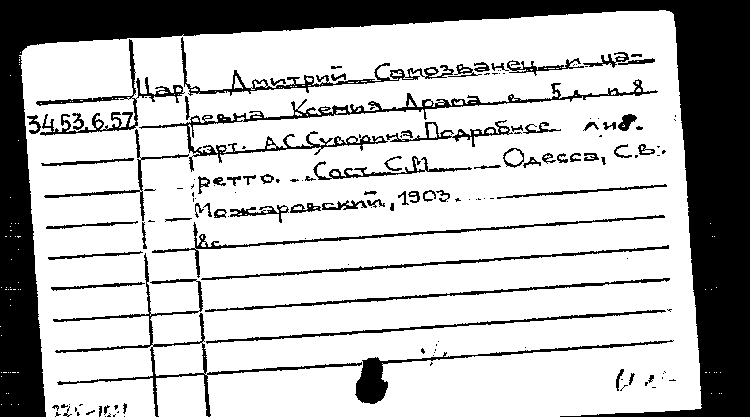 Царь Дмитрий Самозванец и ца-
34.53.6.57 ревна Ксения. Драма в 5 д. и 8
карт. А.С.Суворина. Подробное либ.
ретто. Сост. С.М. Одесса, С.В.
Можаровский, 1903.
8с.